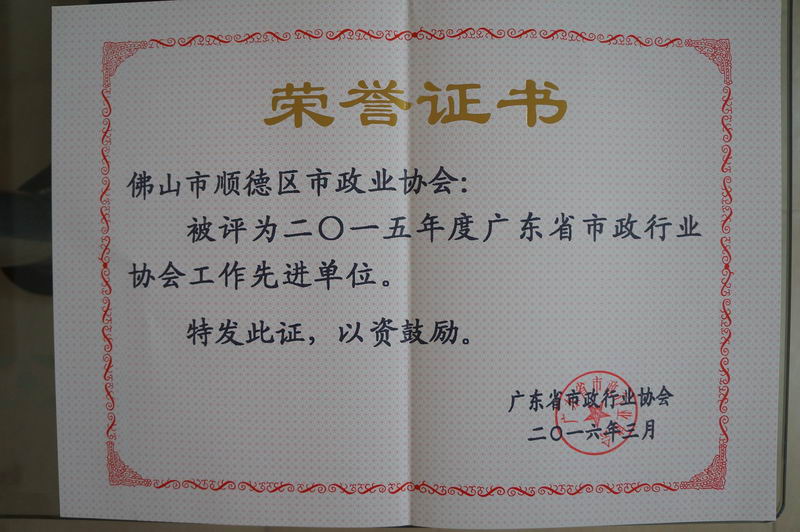 荣誉证书
佛山市顺德区市政业协会:
被评为二〇一五年度广东省市政行业
协会工作先进单位。
特发此证，以资鼓励。
广东省市政行业协会
二〇一六年三月